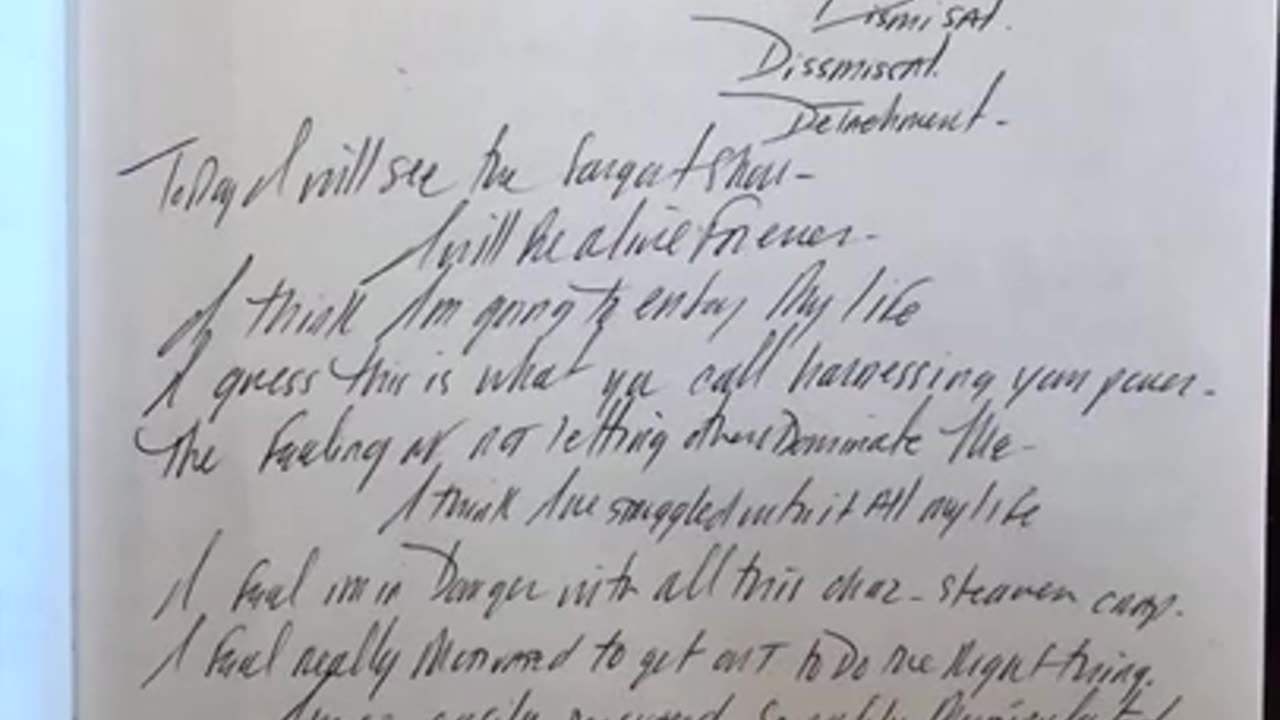 Dismisal.
Dissmissal.
Detachment-
Today I will see the Sargent Show-
I will be alive forever-
I think I'm going to enjoy My life
I guess this is what you call harnessing your power-
The feeling of not letting others Dominate Me-
I think I've struggled with it All my life
I feel im in Danger with all this
I feel really Motivated to get out to Do the Right thing.
easily